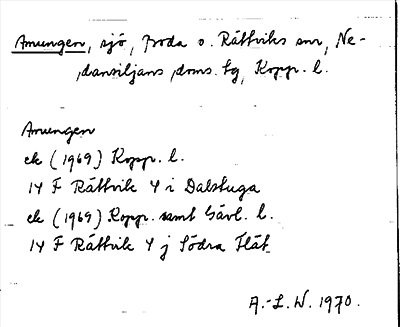 Amungen, sjö, Boda o. Rättviks snr, Ne-
dansiljans doms. tg, Kopp. l.
Amungen
ek (1969) Kopp. l.
14 F Rättvik 4 i Dalstuga
ek (1969) Kopp. samt Gävl. l.
14 F Rättvik 4 j Södra Flät
A.-L. W. 1970.